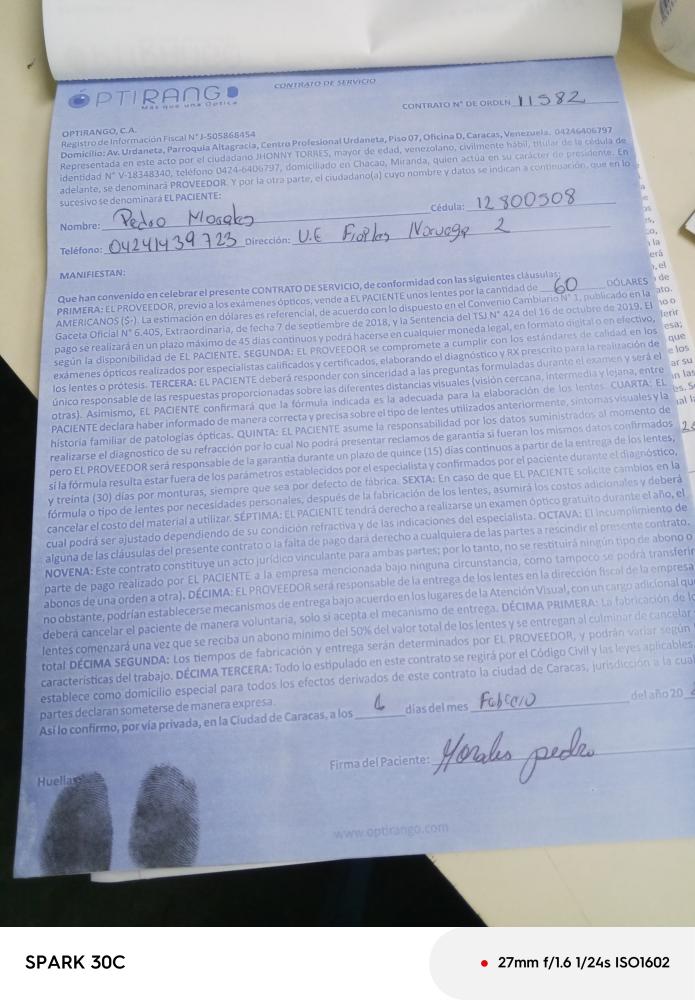 OPTIRANGO
Más que una Óptica
CONTRATO DE SERVICIO
CONTRATO N° DE ORDEN 11582
OPTIRANGO, C.A.
Registro de Información Fiscal N° J-505868454
Domicilio: Av. Urdaneta, Parroquia Altagracia, Centro Profesional Urdaneta, Piso 07, Oficina D, Caracas, Venezuela. 04246406797
Representada en este acto por el ciudadano JHONNY TORRES, mayor de edad, venezolano, civilmente hábil, titular de la cédula de
identidad N° V-18348340, teléfono 0424-6406797, domiciliado en Chacao, Miranda, quien actúa en su carácter de presidente. En
adelante, se denominará PROVEEDOR. Y por la otra parte, el ciudadano(a) cuyo nombre y datos se indican a continuación, que en lo
sucesivo se denominará EL PACIENTE:
Nombre: Pedro Morales Cédula: 12800508
Teléfono: 04241439723 Dirección: U.E Noruega 2
MANIFIESTAN:
Que han convenido en celebrar el presente CONTRATO DE SERVICIO, de conformidad con las siguientes cláusulas:
PRIMERA: EL PROVEEDOR, previo a los exámenes ópticos, vende a EL PACIENTE unos lentes por la cantidad de 60 DÓLARES
AMERICANOS ($-). La estimación en dólares es referencial, de acuerdo con lo dispuesto en el Convenio Cambiario N° 1, publicado en la
Gaceta Oficial N° 6.405, Extraordinaria, de fecha 7 de septiembre de 2018, y la Sentencia del TSJ N° 424 del 16 de octubre de 2019. El
pago se realizará en un plazo máximo de 45 días continuos y podrá hacerse en cualquier moneda legal, en formato digital o en efectivo,
según la disponibilidad de EL PACIENTE. SEGUNDA: EL PROVEEDOR se compromete a cumplir con los estándares de calidad en los
exámenes ópticos realizados por especialistas calificados y certificados, elaborando el diagnóstico y RX prescrito para la realización de
los lentes o prótesis. TERCERA: EL PACIENTE deberá responder con sinceridad a las preguntas formuladas durante el examen y será el
único responsable de las respuestas proporcionadas sobre las diferentes distancias visuales (visión cercana, intermedia y lejana, entre
otras). Asimismo, EL PACIENTE confirmará que la fórmula indicada es la adecuada para la elaboración de los lentes. CUARTA: EL
PACIENTE declara haber informado de manera correcta y precisa sobre el tipo de lentes utilizados anteriormente, síntomas visuales y la
historia familiar de patologías ópticas. QUINTA: EL PACIENTE asume la responsabilidad por los datos suministrados al momento de
realizarse el diagnostico de su refracción por lo cual No podrá presentar reclamos de garantía si fueran los mismos datos confirmados
pero EL PROVEEDOR será responsable de la garantía durante un plazo de quince (15) días continuos a partir de la entrega de los lentes,
si la fórmula resulta estar fuera de los parámetros establecidos por el especialista y confirmados por el paciente durante el diagnóstico,
y treinta (30) días por monturas, siempre que sea por defecto de fábrica. SEXTA: En caso de que EL PACIENTE solicite cambios en la
fórmula o tipo de lentes por necesidades personales, después de la fabricación de los lentes, asumirá los costos adicionales y deberá
cancelar el costo del material a utilizar. SÉPTIMA: EL PACIENTE tendrá derecho a realizarse un examen óptico gratuito durante el año, el
cual podrá ser ajustado dependiendo de su condición refractiva y de las indicaciones del especialista. OCTAVA: El incumplimiento de
alguna de las cláusulas del presente contrato o la falta de pago dará derecho a cualquiera de las partes a rescindir el presente contrato.
NOVENA: Este contrato constituye un acto jurídico vinculante para ambas partes; por lo tanto, no se restituirá ningún tipo de abono o
parte de pago realizado por EL PACIENTE a la empresa mencionada bajo ninguna circunstancia, como tampoco se podrá transferir
abonos de una orden a otra). DÉCIMA: EL PROVEEDOR será responsable de la entrega de los lentes en la dirección fiscal de la empresa
no obstante, podrían establecerse mecanismos de entrega bajo acuerdo en los lugares de la Atención Visual, con un cargo adicional que
deberá cancelar el paciente de manera voluntaria, solo si acepta el mecanismo de entrega. DÉCIMA PRIMERA: La fabricación de lo
lentes comenzará una vez que se reciba un abono mínimo del 50% del valor total de los lentes y se entregan al culminar de cancelar
total DÉCIMA SEGUNDA: Los tiempos de fabricación y entrega serán determinados por EL PROVEEDOR, y podrán variar según
características del trabajo. DÉCIMA TERCERA: Todo lo estipulado en este contrato se regirá por el Código Civil y las leyes aplicables.
establece como domicilio especial para todos los efectos derivados de este contrato la ciudad de Caracas, jurisdicción a la cual
partes declaran someterse de manera expresa.
Así lo confirmo, por vía privada, en la Ciudad de Caracas, a los 6 días del mes Febrero del año 20
Firma del Paciente: Morales pedro
Huellas
www.optirango.com
SPARK 30C
27mm f/1.6 1/24s ISO1602